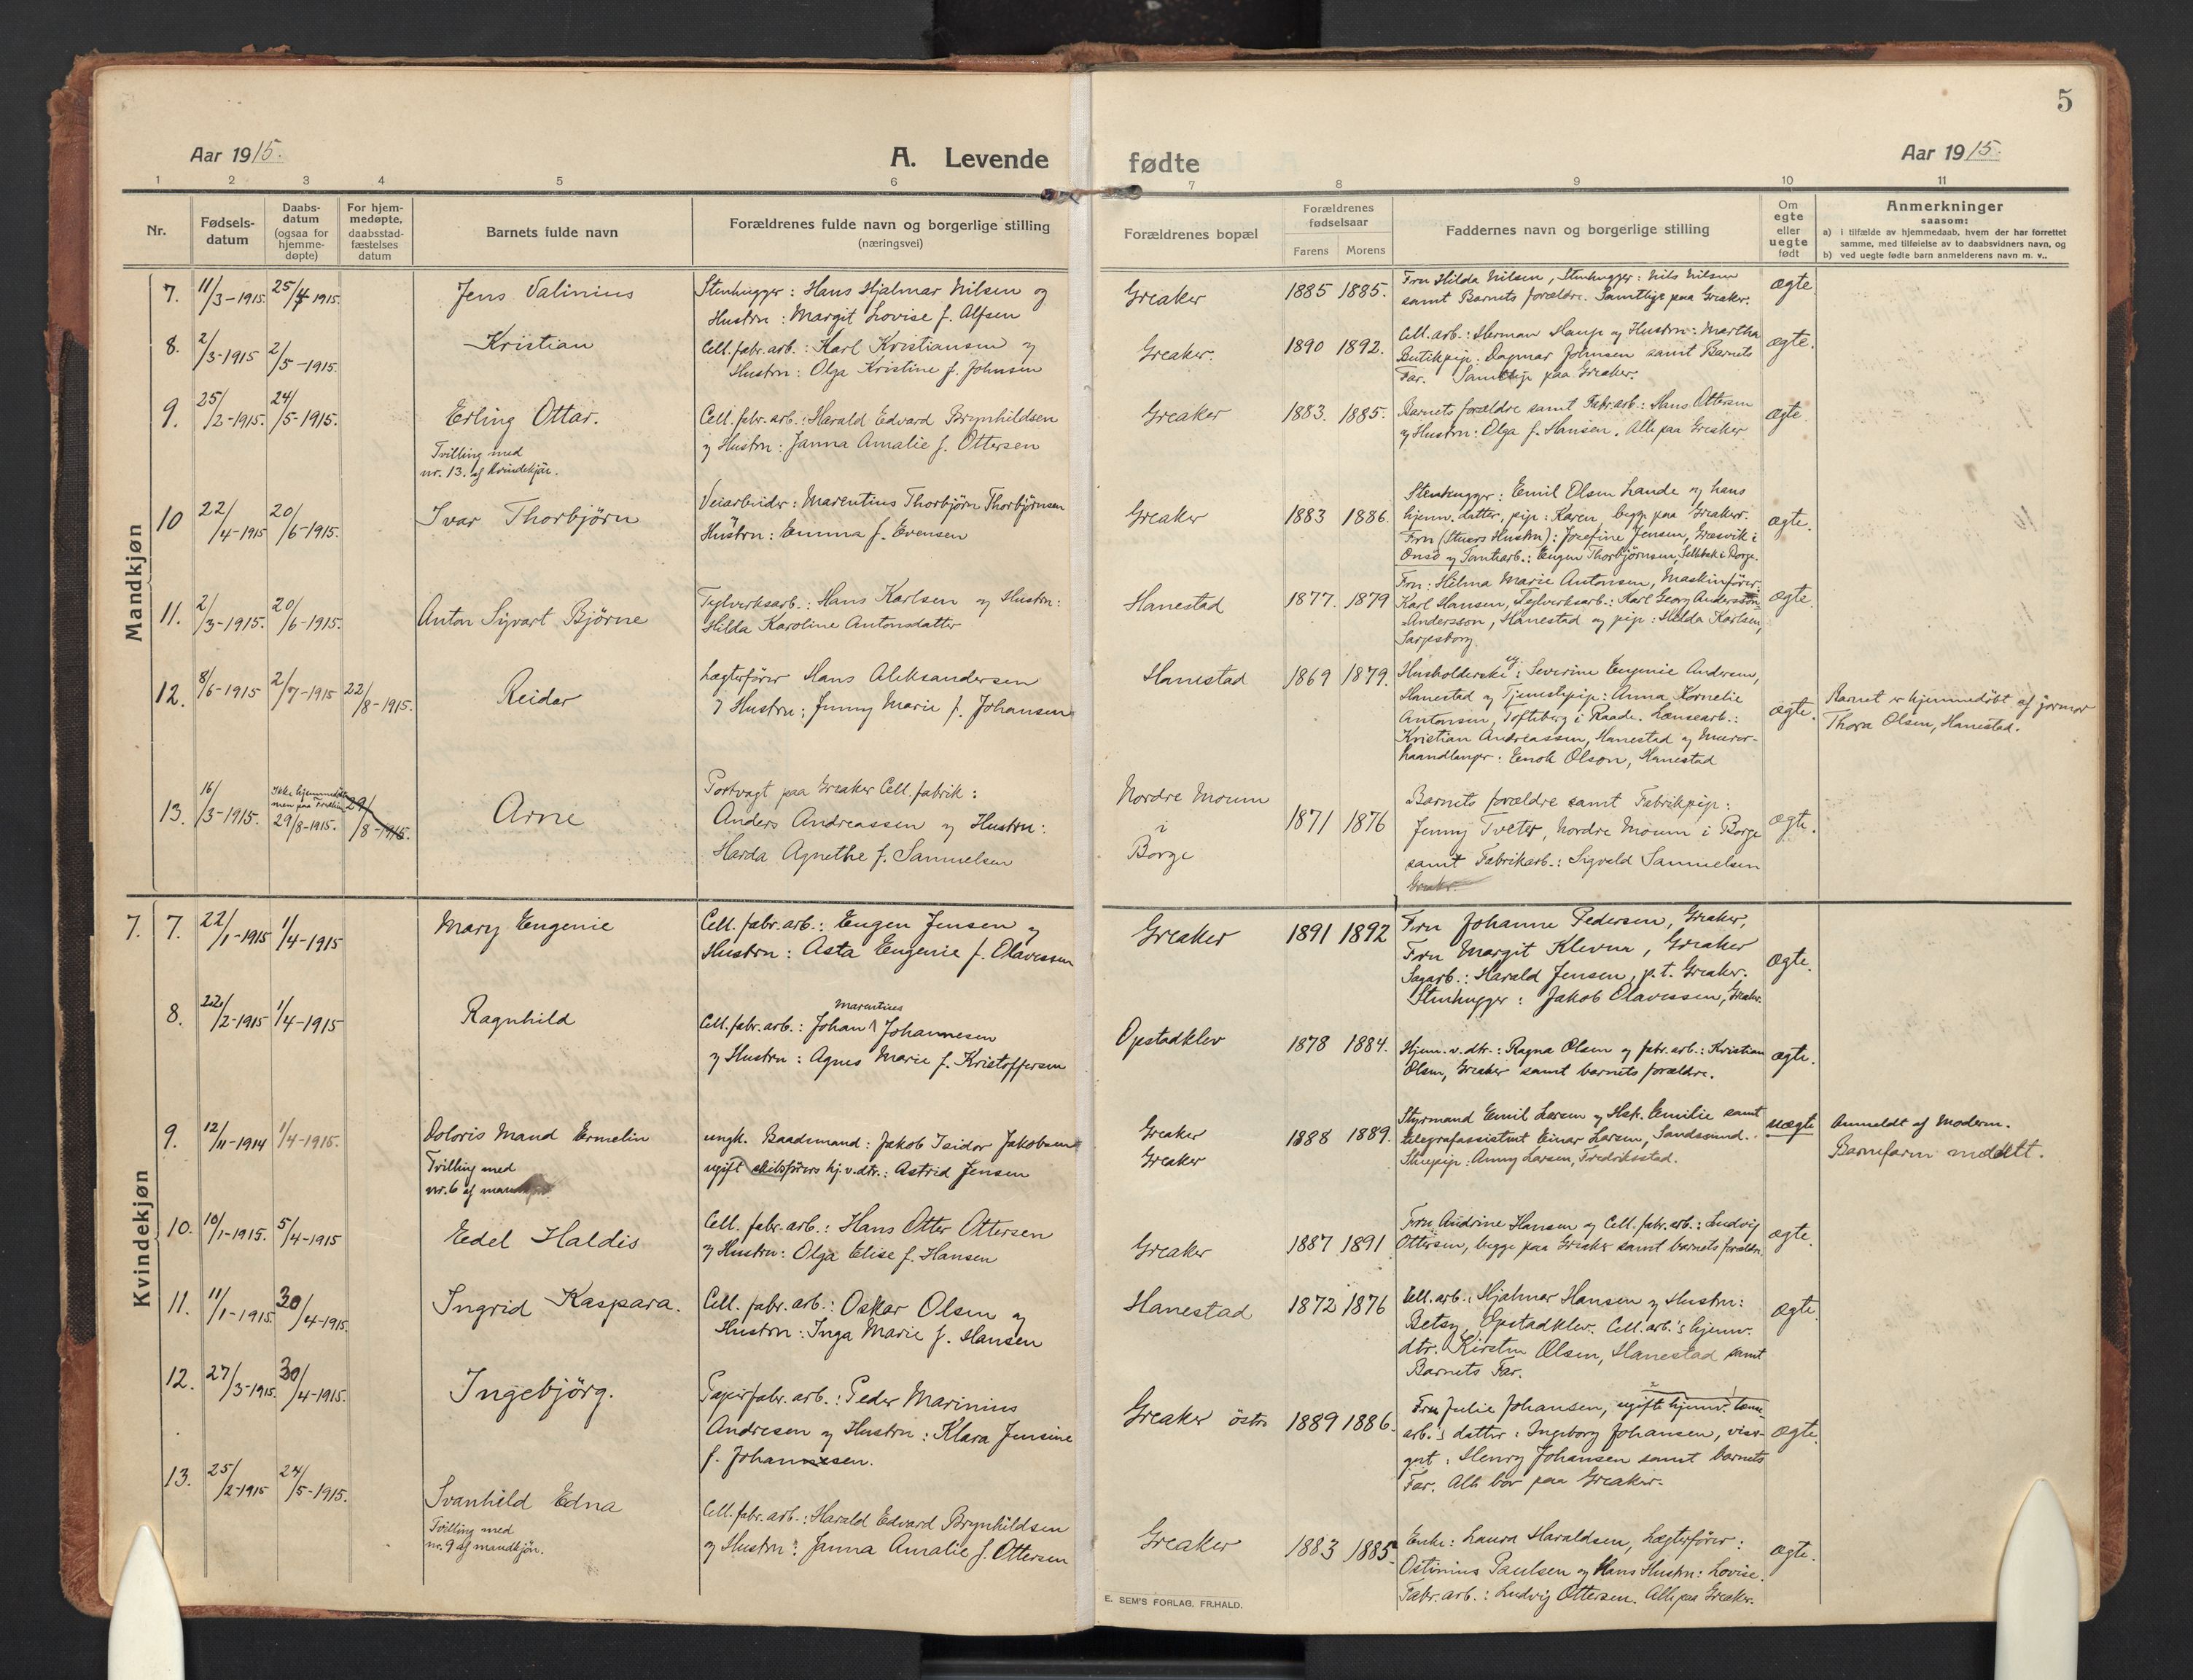 5
Aar 1915.
A. Levende
fødte
Aar 1915.
1 2 3 4 5 6 7 8 9 10 11
Nr.
Fødsels-
datum
Daabs-
datum
(ogsaa for
hjemme-
døpte)
For hjem-
medøpte,
daabsstad-
fæstelses
datum
Barnets fulde navn
Forældrenes fulde navn og borgerlige stilling
(næringsvei)
Forældrenes bopæl
Forældrenes
fødselsaar
Farens Morens
Faddernes navn og borgerlige stilling
Om
egte
eller
uegte
født
Anmerkninger
saasom:
a) i tilfælde av hjemmedaab, hvem der har forrettet
samme, med tilføielse av to daabsvidners navn, og
b) ved uegte fødte barn anmelderens navn m. v..
Mandkjøn
7. 11/3-1915. 25/4-1915. Jens Valinius
Stenhugger: Hans Hjalmar Nilsen og
Hustru: Margit Lovise f. Alfsen
Greaker 1885 1885.
Fru Hilda Nilsen, Stenhugger: Nils Nilsen
samt Barnets forældre. Samtlige paa Greaker.
ægte.
8. 2/3-1915 2/5-1915. Kristian
Cell. fabr. arb.: Karl Kristiansen og
Hustru: Olga Kristine f. Johnsen
Greaker. 1890 1892.
Cell. arb.: Herman Haup og Hustru: Martha
Butikpip. Dagmar Johnsen samt Barnets
Far. Samtlige paa Greaker.
ægte.
9. 25/2-1915. 24/5-1915. Erling Ottar.
Tvilling med
nr. 13. af kvindekjön.
Cell. fabr. arb.: Harald Edvard Brynhildsen
og Hustru: Janna Amalie f. Ottersen
Greaker 1883. 1885.
Barnets forældre samt Fabr. arb.: Hans Ottersen
og Hustru: Olga f. Hansen. Alle paa Greaker
ægte.
10 22/4-1915 20/6-1915. Ivar Thorbjörn
Veiarbeider: Marentius Thorbjörn Thorbjörnsen
Hustru: Emma f. Evensen
Greaker 1883 1886.
Stenhugger: Emil Olsen Lande og hans
hjemv. datter, pip: Karen, begge paa Greaker.
Fru (Stuers Hustru): Josefine Jensen, Græsvik i
Onsö og Tomtearb.: Eugen Thorbjörnsen, Sellebak i Borge.
ægte.
11. 2/3-1915. 20/6-1915. Anton Sigvart Bjørne
Teglverksarb.: Hans Karlsen og Hustru:
Hilda Karoline Antonsdatter
Hanestad 1877. 1879
Fru: Hilma Marie Antonsen, Maskinförer:
Karl Hansen, Teglverksarb.: Karl Georg Andersson
Andersson, Hanestad og pip: Hilda Karlsen,
Sarpsborg
ægte.
12. 8/6-1915 2/7-1915 22/8-1915. Reidar
Lægterförer Hans Aleksandersen
og Hustru: Jenny Marie f. Johansen
Hanestad 1869 1879.
Husholderske: Severine Eugenie Andersen,
Hanestad og Tjenestepip: Anna Kornelie
Antonsen, Tofteberg i Raade. Lænsearb.:
Kristian Andreassen, Hanestad og Murer-
haandlanger: Enok Olson, Hanestad
ægte.
Barnet er hjemmedöbt af jormor
Thora Olsen, Hanestad.
13. 16/3-1915. Ikke hjemmedöbt
men paa
29/8-1915. 29/8-1915. Arne
Portvagt paa Greaker Cell. fabrik:
Anders Andreassen og Hustru:
Harda Agnethe f. Samuelsen
Nordre Moum
i
Borge
1871 1876
Barnets forældre samt Fabrikpip:
Jenny Tveter, Nordre Moum i Borge
samt Fabrikarb.: Sigvald Samuelsen
Greaker.
ægte.
Kvindekjøn
7. 7. 22/1-1915 1/4-1915 Mary Eugenie
Cell. fabr. arb.: Eugen Jensen og
Hustru: Asta Eugenie f. Olavessen
Greaker 1891 1892
Fru Johanne Pedersen, Greaker,
Fru Margit Klevna, Greaker
Sagarb.: Harald Jensen, p.t. Greaker.
Stenhugger: Jakob Olavessen, Greaker.
ægte.
8. 22/2-1915 1/4-1915 Ragnhild
Marentius
Cell. fabr. arb.: Johan Johannesen
og Hustru: Agnes Marie f. Kristoffersen
Opstadklev 1878 1884.
Hjem. v. dtr.: Ragna Olsen og fabr. arb.: Kristian
Olsen, Greaker samt barnets forældre.
ægte.
9. 12/11-1914 1/4-1915. Doloris Maud Ermelin
Tvilling med
nr. 6 af
ungk. Baadsmand: Jakob Isidor Jakobsen
ugift skibsförers hj. v. dtr.: Astrid Jensen
Greaker
Greaker
1888 1889.
Styrmand Emil Larsen og Hst. Emilie samt
telegrafassistent Einar Larsen, Sandesund.
Stuepip: Anny Larsen, Fredriksstad.
uægte
Anmeldt af Moderen.
Barnefarm meddelt.
10. 10/1-1915. 5/4-1915 Edel Haldis
Cell. fabr. arb.: Hans Otter Ottersen
og Hustru: Olga Elise f. Hansen
Greaker 1887 1891
Fru Andrine Hansen og Cell. fabr. arb.: Ludvig
Ottersen, begge paa Greaker samt barnets forældre.
ægte.
11. 11/1-1915 30/4-1915 Ingrid Kaspara.
Cell. fabr. arb.: Oskar Olsen og
Hustru: Inga Marie f. Hansen
Hanestad 1872 1876
Cell. arb.: Hjalmar Hansen og Hustru:
Betsy, Opstadklev. Cell. arb.'s hjemv.
dtr. Kirsten Olsen, Hanestad samt
Barnets Far.
ægte
12. 27/3-1915. 30/4-1915. Ingebjörg.
Papirfabr. arb.: Peder Marinius
Andresen og Hustru: Klara Jensine
f. Johannesen.
Greaker östre 1889 1886.
Fru Julie Johansen, ugifte hjemv. tomt-
arb.'s datter: Ingeborg Johansen, vise-
gut: Henry Johansen samt barnets
Far. Alle bor paa Greaker.
ægte.
13. 25/2-1915 24/5-1915. Svanhild Edna
Tvilling med
nr. 9 af mandkjön.
Cell. fabr. arb.: Harald Edvard Brynhildsen
og Hustru: Janna Amalie f. Ottersen
Greaker 1883 1885.
Enke: Laura Haraldsen, Lægterförer:
Ostinius Paulsen og Hans Hustru: Lovise.
Fabr. arb.: Ludvig Ottersen. Alle paa Greaker.
ægte.
E. SEM'S FORLAG, FR.HALD.